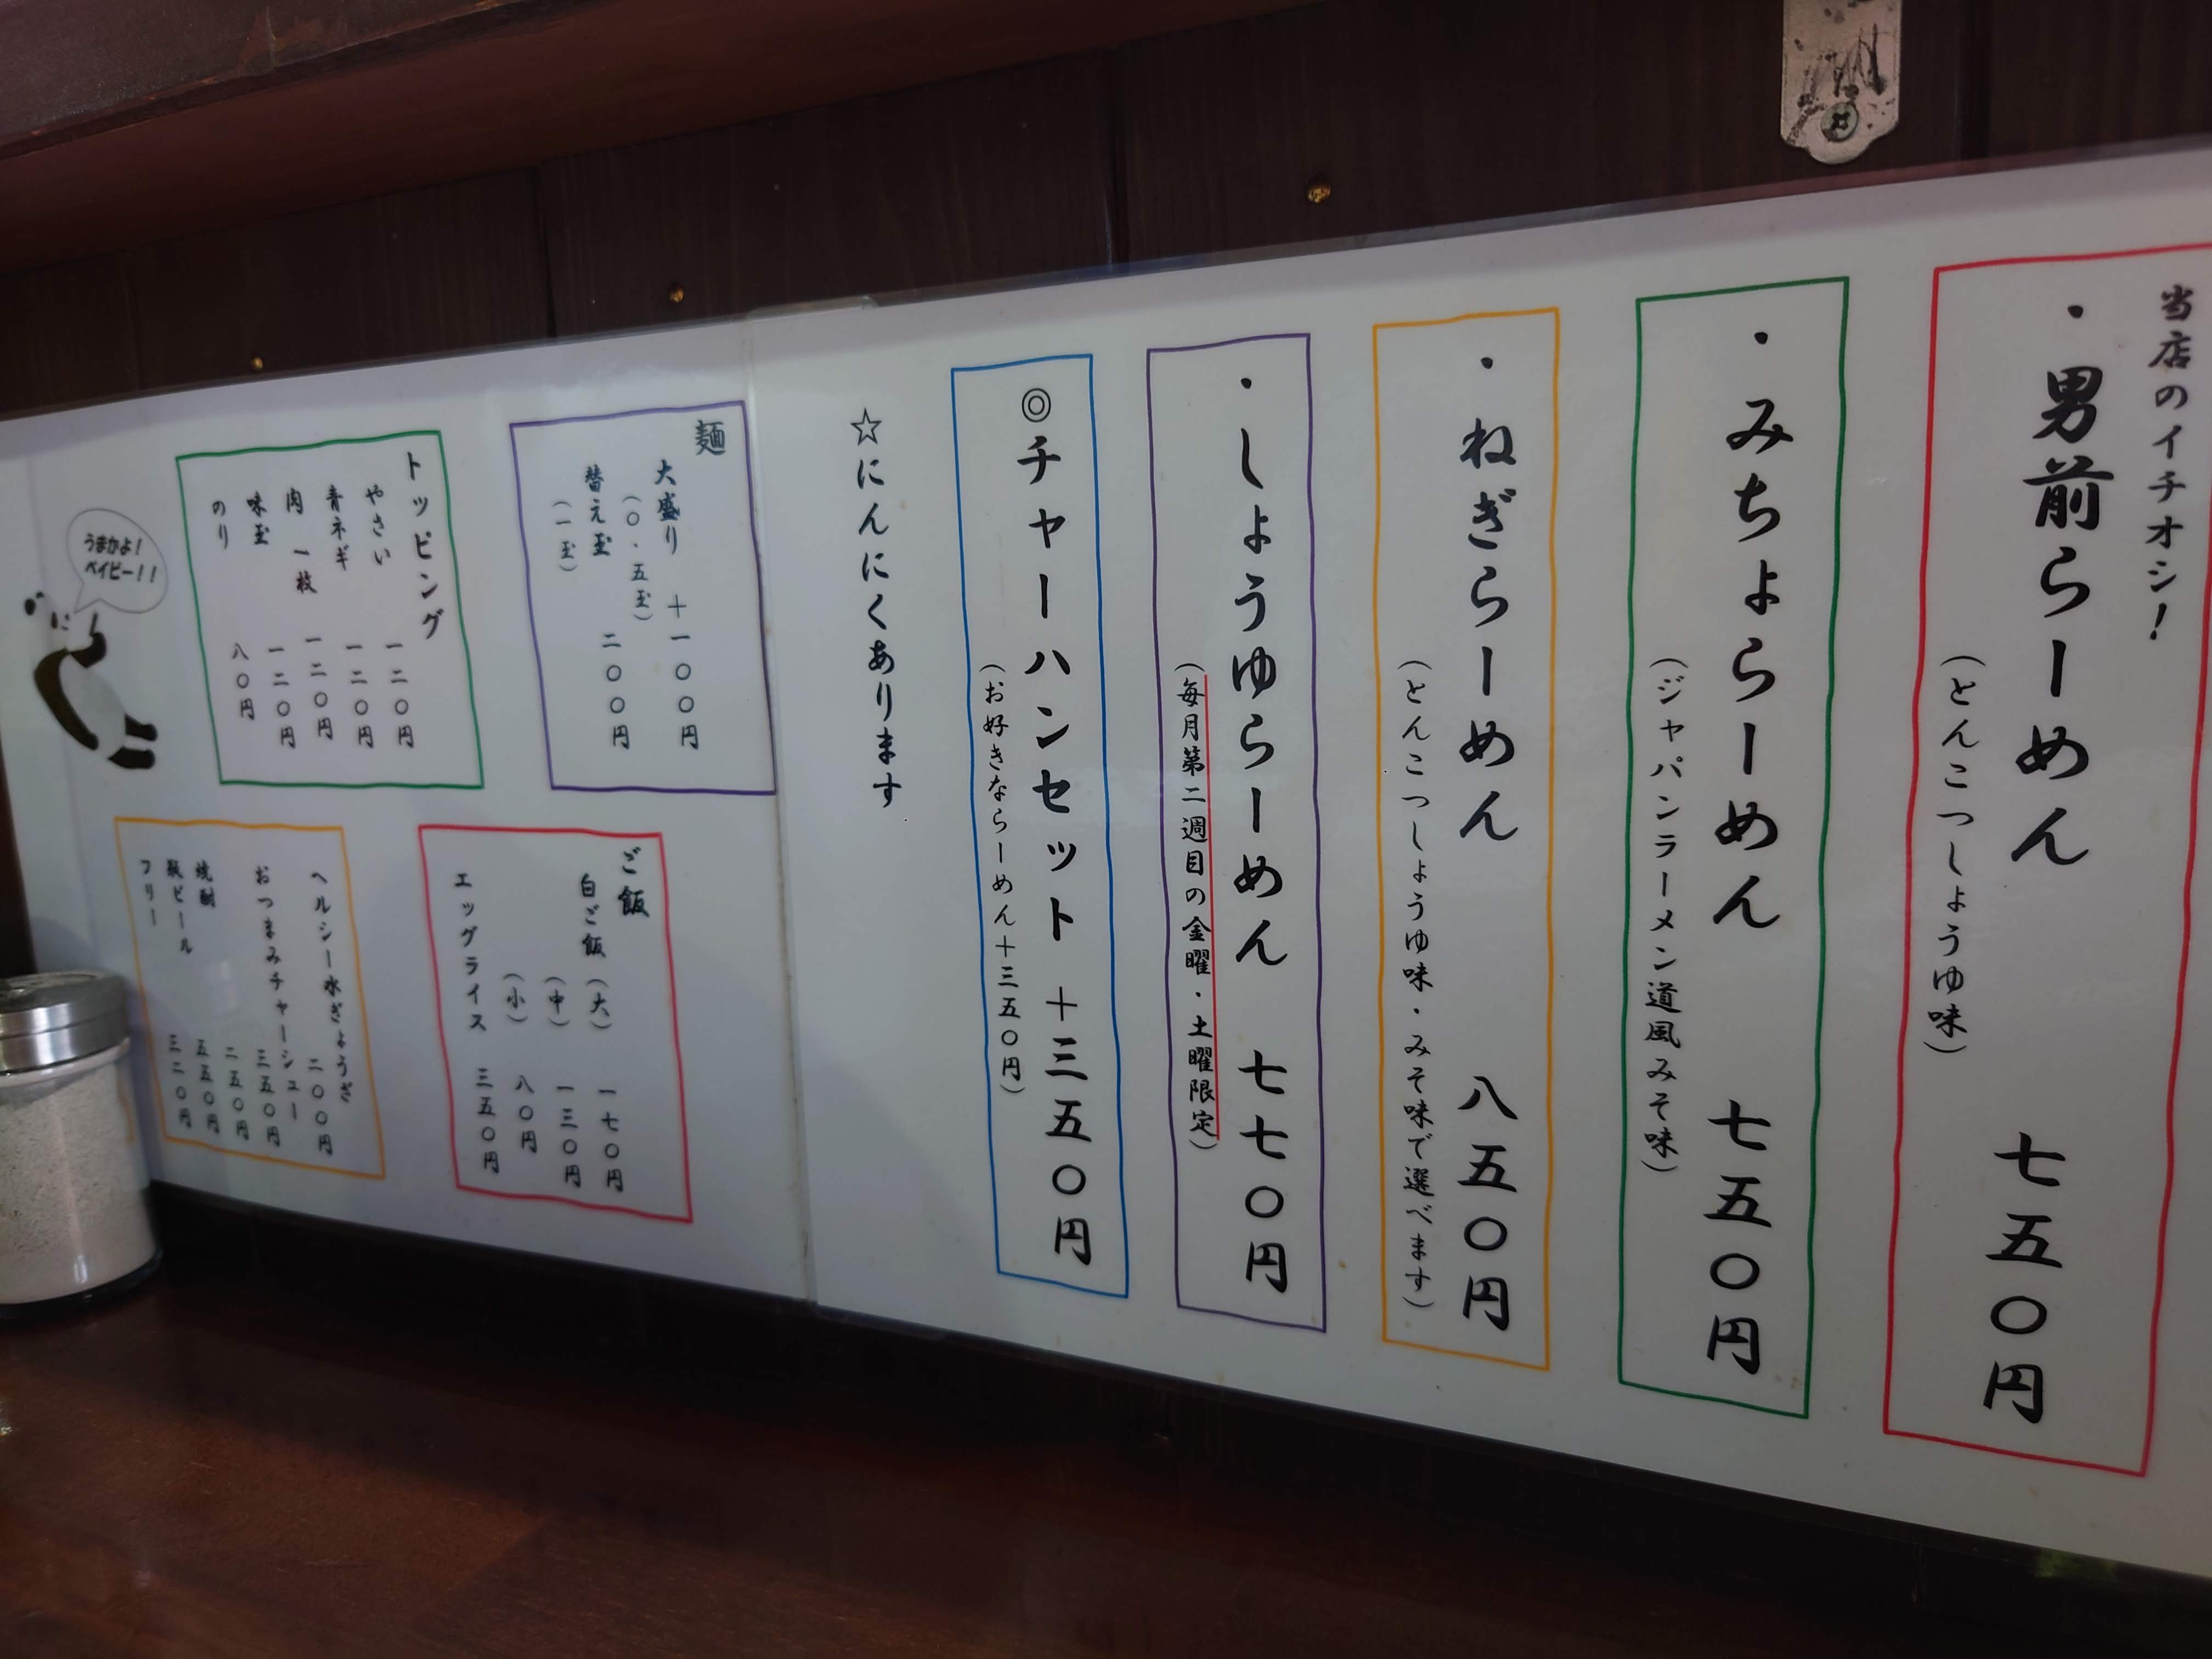 当店のイチオシ！
・男前らーめん 七五〇円
（とんこつしょうゆ味）
・みちょらーめん 七五〇円
（ジャパンラーメン道風みそ味）
・ねぎらーめん 八五〇円
（とんこつしょうゆ味・みそ味で選べます）
・しょうゆらーめん 七七〇円
（毎月第二週目の金曜・土曜限定）
◎チャーハンセット ＋三五〇円
（お好きならーめん＋三五〇円）
☆にんにくあります
麺
大盛り ＋一〇〇円
（〇・五玉）
替え玉 二〇〇円
（一玉）
トッピング
やさい 一二〇円
青ネギ 一二〇円
肉 一枚 一二〇円
味玉 一二〇円
のり 八〇円
うまかよ！
ベイビー！！
ご飯
白ご飯（大） 一七〇円
（中） 一三〇円
（小） 八〇円
エッグライス 三五〇円
ヘルシー水ぎょうざ 二〇〇円
おつまみチャーシュー 三五〇円
焼酎 二五〇円
瓶ビール 五五〇円
フリー 三二〇円